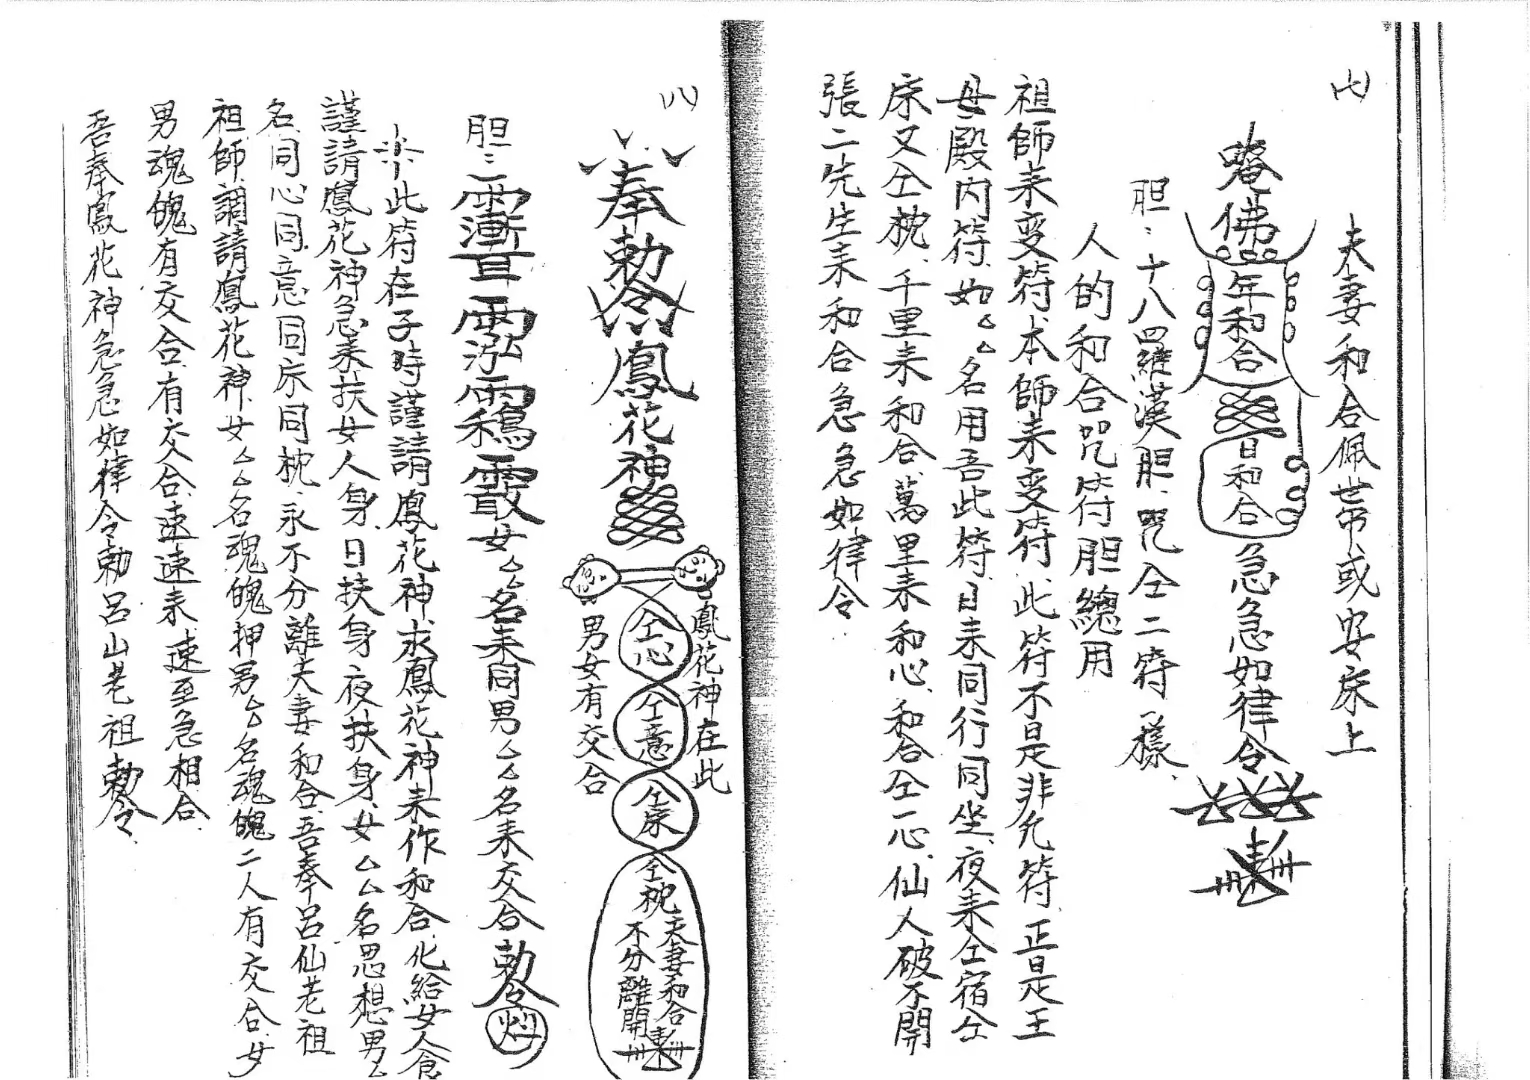 七
夫妻和合佩帶或安床上
唵佛年和合日和合急急如律令
胆：十八羅漢胆咒仝二符一樣
人的和合咒符胆總用
祖師来变符本師来变符此符不是非凡符正是王
母殿内符如厶厶名用吾此符日来同行同坐夜来仝宿仝
床又仝枕千里来和合萬里来和心和合仝一心仙人破不開
張二先生来和合急急如律令
八
奉勅令鳳花神
鳳花神在此
男女有交合
仝心
仝意
仝床
仝枕夫妻和合
不分離開
胆：女厶厶名来同男厶厶名来交合勅令
此符在子時謹請鳳花神求鳳花神来作和合化給女人食
謹請鳳花神急来扶女人身日扶身夜扶身女厶厶名思想男厶
名同心同意同床同枕永不分離夫妻和合吾奉呂仙老祖
祖師調請鳳花神女厶厶名魂魄押男厶厶名魂魄二人有交合女
男魂魄有交合有交合速速来速至急相合
吾奉鳳花神急急如律令勅呂山老祖勅令